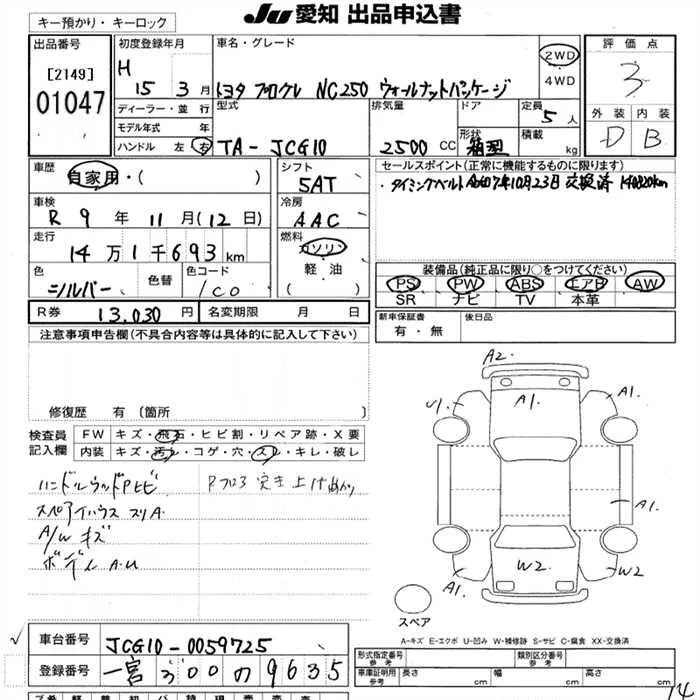 キー預かり・キーロック
JU 愛知 出品申込書
出品番号
[2149]
01047
初度登録年月
H 15 3月
ディーラー・並行
モデル年式 年
ハンドル 左 右
車名・グレード
トヨタ プログレ NC250 ウォールナットパッケージ
2WD
4WD
型式
TA-JCG10
排気量
2500 CC
ドア
形状
箱型
定員
5人
積載
kg
評価点
3
外装 内装
D B
車歴
自家用・( )
シフト
5AT
車検
R 9年 11月(12日)
冷房
AAC
走行
14万1千693km
燃料
ガソリン
軽油
色
シルバー
色替
色コード
1C0
R券
13,030円
名変期限 月 日
セールスポイント(正常に機能するものに限ります)
・タイミングベルト 令和7年10月23日 交換済 140820km
装備品(純正品に限り○をつけてください)
PS PW ABS エアB AW
SR ナビ TV 本革
新車保証書
有・無
後日品
注意事項申告欄(不具合内容等は具体的に記入して下さい)
修復歴 有〔箇所 〕
検査員
記入欄
FW キズ・飛石・ヒビ割・リペア跡・X要
内装 キズ・汚レ・コゲ・穴・スレ・キレ・破レ
ハンドルウッドPヒビ
スペアタイハウス スリA.
A/W キズ
ボディ A.U
Rフロア 突き上げあり
A2.
U1.
A1.
A1.
A1.
A1.
W2
A1.
W2
スペア
A-キズ E-エクボ U-凹み W-補修跡 S-サビ C-腐食 XX-交換済
車台番号
JCG10-0059725
登録番号
一宮 300 の 9635
形式指定番号
参考
類別区分番号
参考
車庫証明用
参考
長さ cm 幅 cm 高さ cm